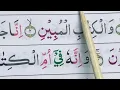 وَالْكِتٰبِ الْمُبِيْنِ ۙ اِنَّا جَ
وَاِنَّهٗ فِيْٓ اُمِّ الْكِتٰ